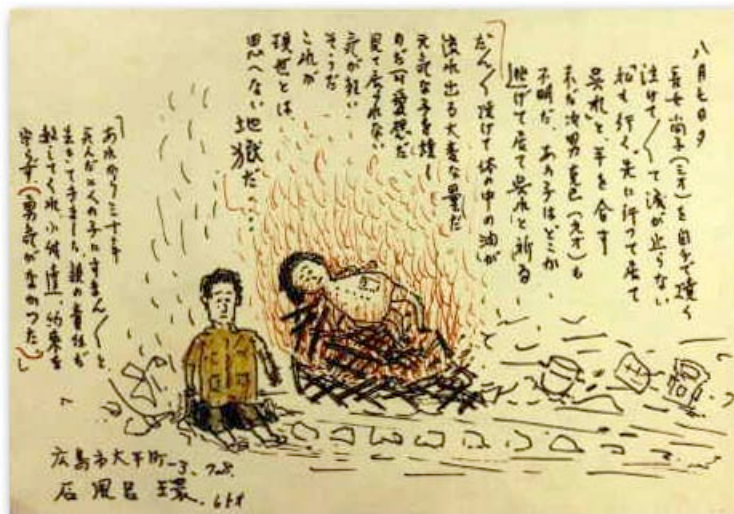 八月七日夕
長女尚子(三才)を自分で焼く
泣けて〳〵て涙が止らない
私も行く。先に行つて居て
呉れと、手を合す
未だ次男克己(九才)も
不明だ、あの子はどこか、
逃げて居て呉れと祈る
だん〳〵焼けて体の中の油が
流れ出る大変な量だ
元気な子を焼く
のだ可愛想だ
見て居られない
気が狂い
そうだ
これが
現世とは
思へない地獄だ....
あれから三十年
死んだ二人の子にすまん〳〵と
生きて来ました親の責任だ
殺してくれ小供達、約束を
守らず(勇気がなかつた)
広島市大手町
石風呂